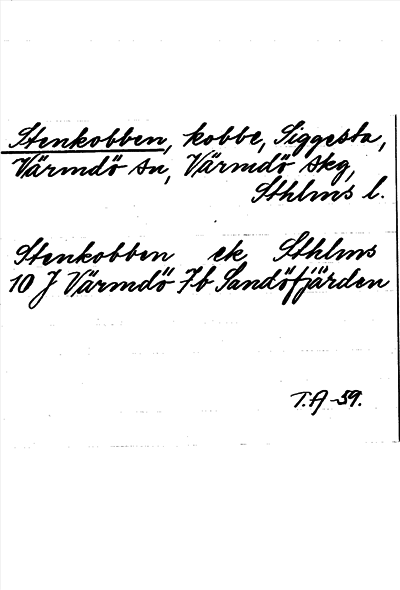 Stenkobben, kobbe, Siggesta,
Värmdö sn, Värmdö skg,
Sthlms l.
Stenkobben ek Sthlms
10 J Värmdö 7b Sandöfjärden
T.A -59.